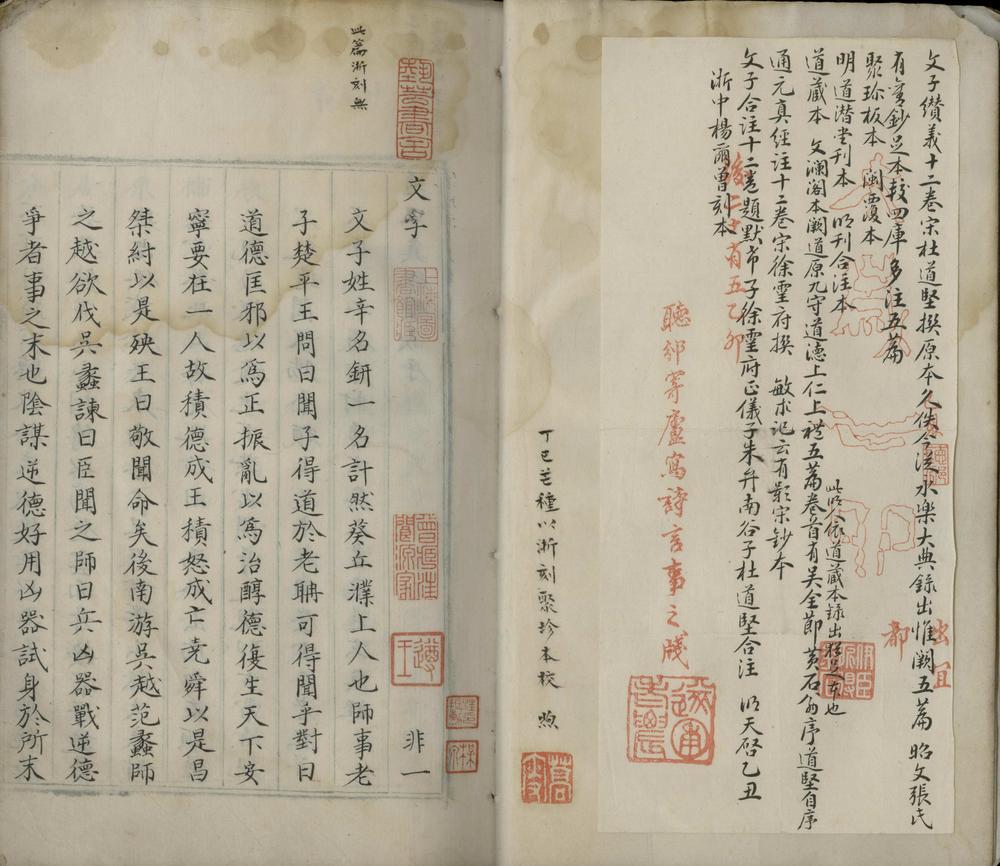 文子纘義十二卷宋杜道堅撰原本久佚今從永樂大典錄出惟闕五篇 昭文張氏
有舊鈔足本較四庫多注五篇
聚珍板本 閩覆本
明道潛堂刊本 明刊合注本
此明人依道藏本錄出
道藏本 文瀾閣本闕道原九守道德上仁上禮五篇卷首有吳全節黃石翁序道堅自序
通元真經注十二卷宋徐靈府撰 敏求記云有影宋鈔本
文子合注十二卷題默希子徐靈府正儀子朱弁南谷子杜道堅合注 明天啓乙丑
浙中楊爾曾刻本
後二十有五乙卯
聽邠寄廬寫詩言事之牋
丁巳芒種以浙刻聚珍本校 煦
此篇浙刻無
文子
非一
文子姓辛名鈃一名計然葵丘濮上人也師事老
子楚平王問曰聞子得道於老聃可得聞乎對曰
道德匡邪以爲正振亂以爲治醇德復生天下安
寧要在一人故積德成王積怒成亡堯舜以是昌
桀紂以是殃王曰敬聞命矣後南游吳越范蠡師
之越欲伐吳蠡諫曰臣聞之師曰兵凶器戰逆德
爭者事之末也陰謀逆德好用凶器試身於所末